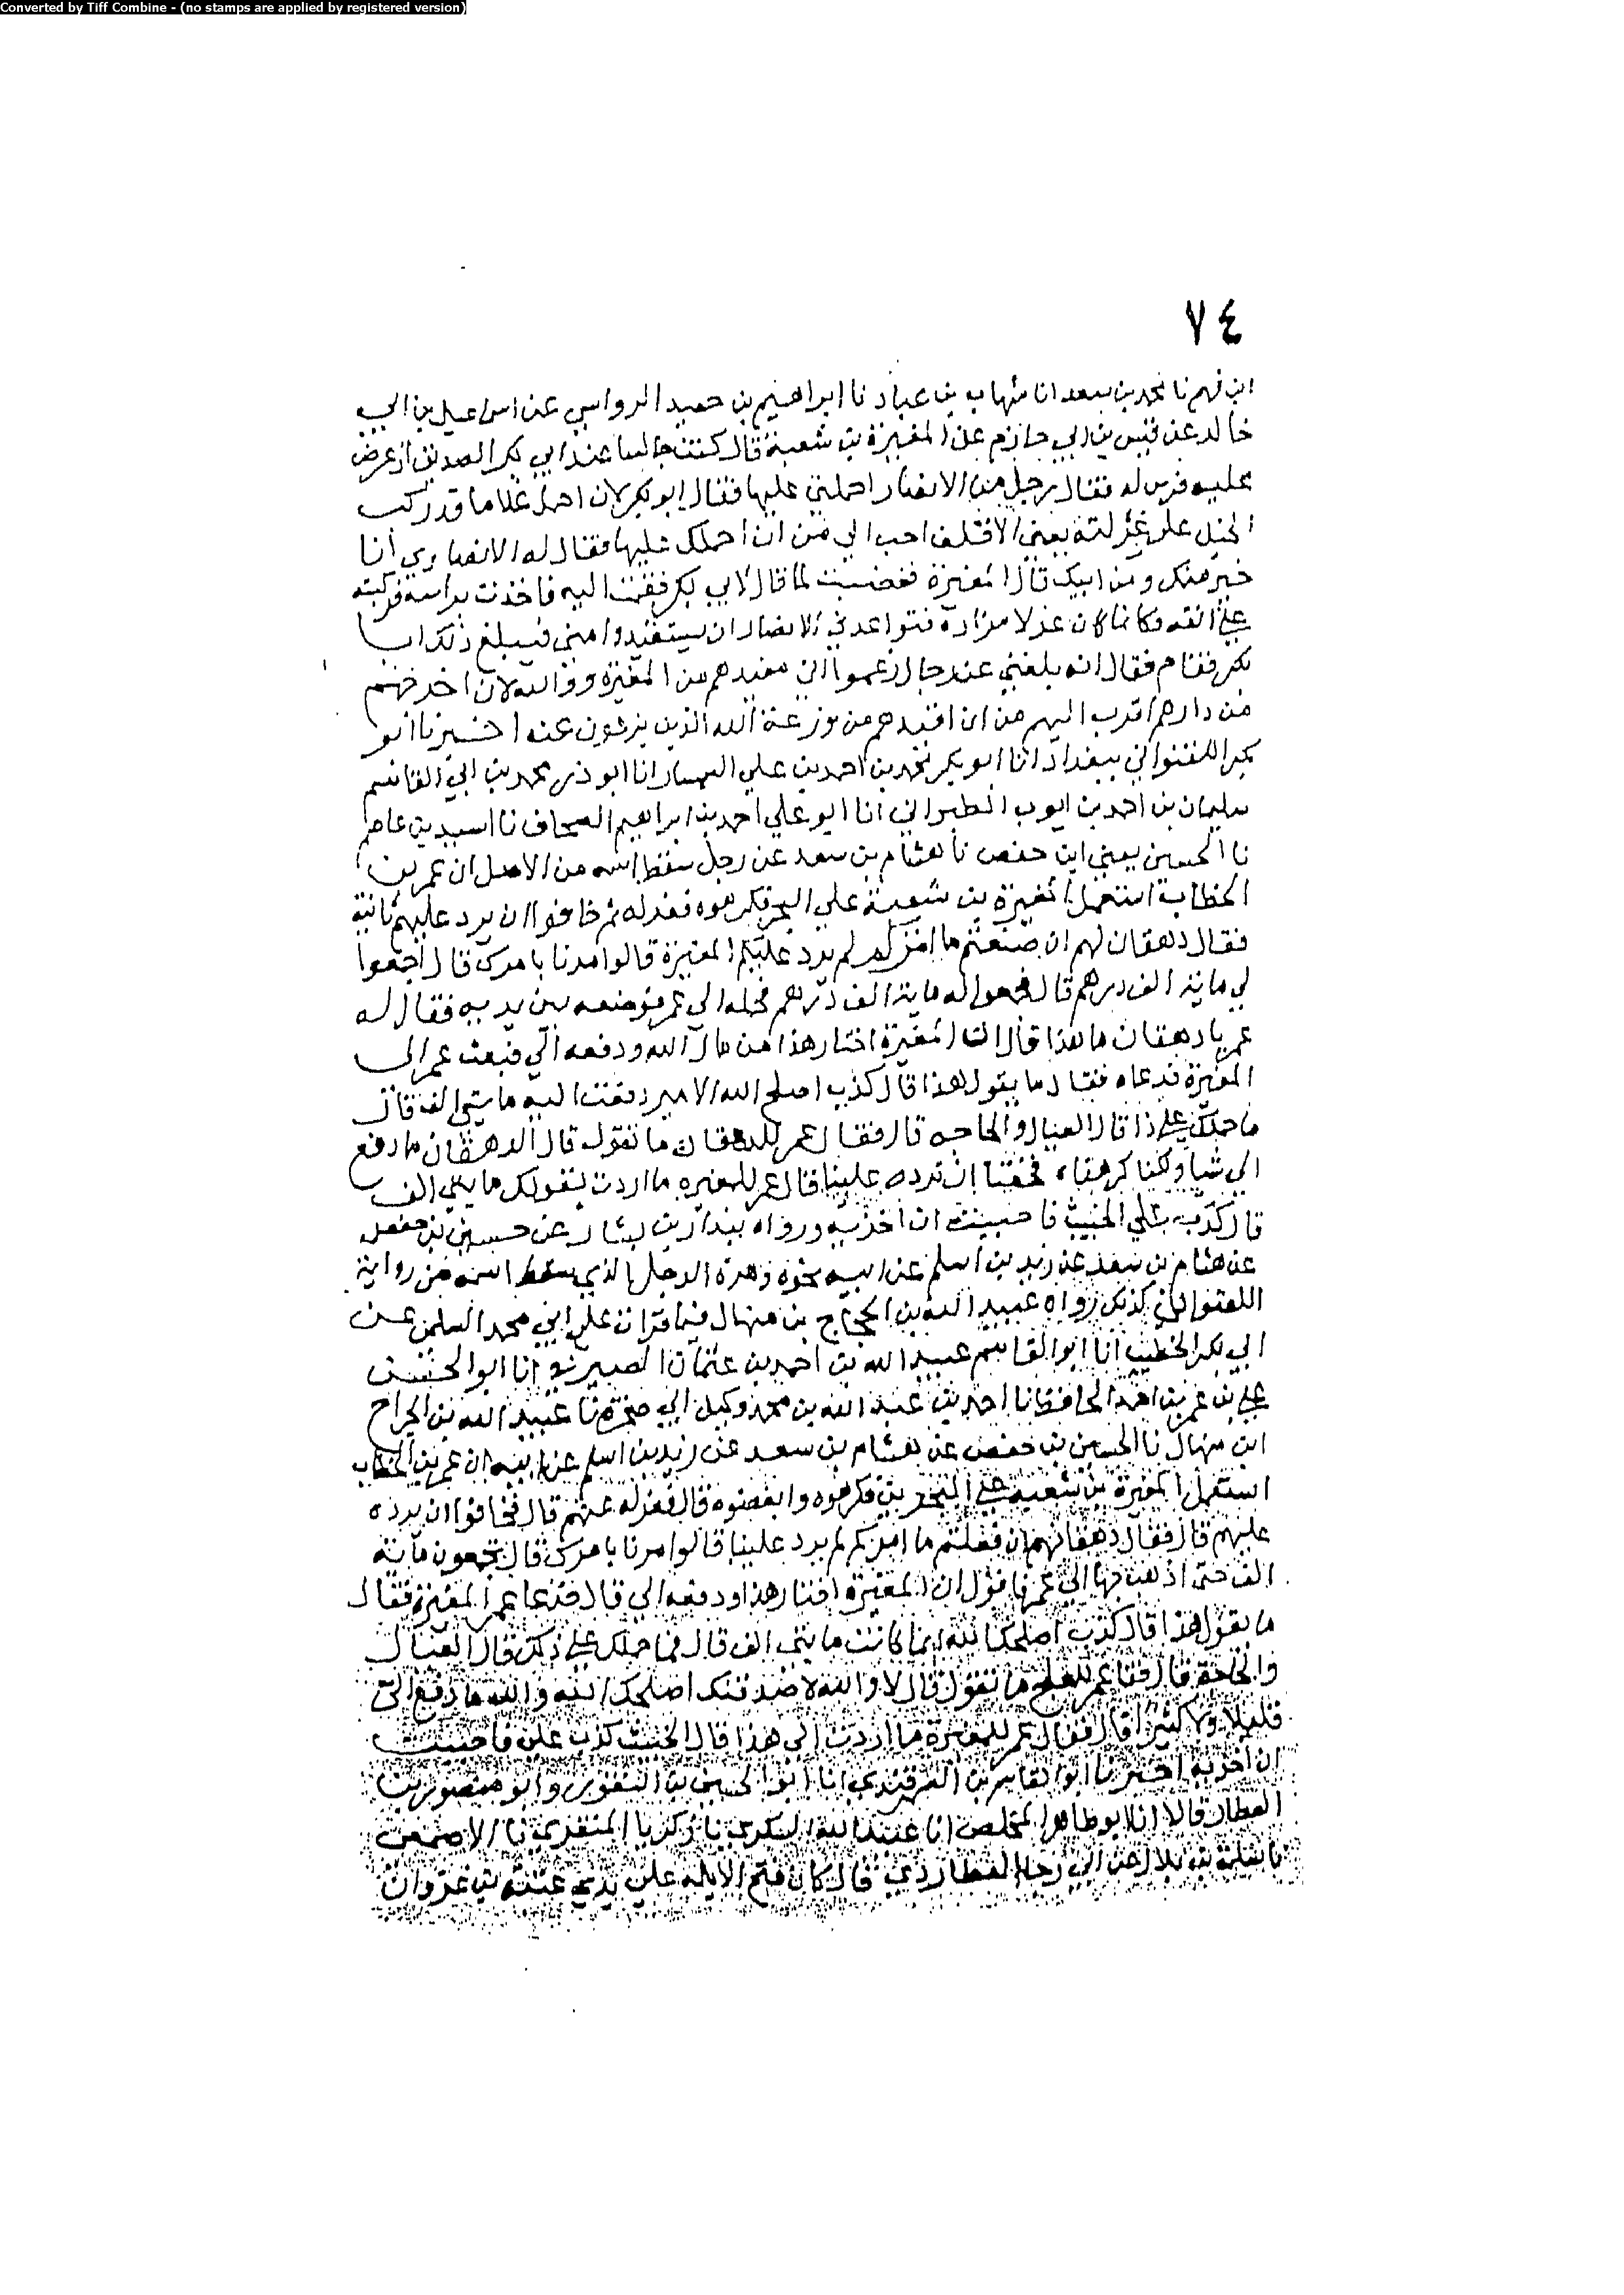 Converted by Tiff Combine - (no stamps are applied by registered version)
٧٤
ابن فهم نا محمد بن سعد انا شهاب بن عباد نا ابراهيم بن حميد الرواسي عن اسماعيل بن ابي
خالد عن قيس بن ابي حازم عن المغيرة بن شعبة قال كنت جالسا عند ابي بكر الصديق اذ عرض
عليه فرس له فقال رجل من الانصار احملني عليها فقال ابو بكر لان احمل غلاما قد ركب
الخيل على غرلته يعني الاقلف احب الي من ان احملك عليها فقال له الانصاري انا
خير منك ومن ابيك قال المغيرة فغضبت لما قال لابي بكر فقمت اليه فاخذت براسه فركبته
على انفه فكانما كان عزلا مزادة فتواعدني الانصار ان يستقيدوا مني فبلغ ذلك ابا
بكر فقام فقال انه بلغني عن رجال زعموا اني مقيدهم من المغيرة ووالله لان اخرجهم
من دارهم اقرب اليهم من ان اقيدهم من وزعة الله الذين يزعون عنه اخبرنا ابو
بكر اللفتواني ببغداد انا ابو بكر محمد بن احمد بن علي السمسار انا ابو ذر محمد بن ابي القاسم
سليمان بن احمد بن ايوب الطبراني انا ابو علي احمد بن ابراهيم الصحاف نا اسيد بن عاصم
نا الحسين يعني ابن حفص نا هشام بن سعد عن رجل سقط اسمه من الاصل ان عمر بن
الخطاب استعمل المغيرة بن شعبة على البحر فكرهوه فعزله ثم خافوا ان يرد عليهم ثانية
فقال دهقان لهم ان صنعتم ما امركم لم يرد عليكم المغيرة قالوا مرنا بامرك قال اجمعوا
لي ماية الف درهم قال فجمعوا له ماية الف درهم فحمله الى عمر فوضعه بين يديه فقال له
عمر يا دهقان ما هذا قال ان المغيرة اختار هذا من مال الله ودفعه الي فبعث عمر الى
المغيرة فدعاه فقال ما يقول هذا قال كذب اصلح الله الامير دفعت اليه مايتي الف قال
ما حملك على ذا قال العيال والحاجه قال فقال عمر للدهقان ما تقول قال الدهقان ما دفع
الي شيا ولكنا كرهناه فخفنا ان ترده علينا فقال عمر للمغيره ما اردت بقولك مايتي الف
قال كذب علي الخبيث فاحببت ان اخزيه ورواه بندار بن بشار عن حسين بن حفص
عن هشام بن سعد عن زيد بن اسلم عن ابيه نحوه وهذا الرجل الذي سقط اسمه من رواية
اللفتواني كذلك رواه عبيد الله بن الحجاج بن منهال فيما قرات على ابي محمد السلمي عن
ابي بكر الخطيب انا ابو القاسم عبيد الله بن احمد بن عثمان الصيرفي انا ابو الحسن
علي بن عمر بن احمد الحافظ نا احمد بن عبد الله بن محمد وكيل ابي صخرة نا عبيد الله بن الحجاج
ابن منهال نا الحسين بن حفص عن هشام بن سعد عن زيد بن اسلم عن ابيه ان عمر بن الخطاب
استعمل المغيرة بن شعبة على البحرين فكرهوه وابغضوه قال فعزله عنهم قال فخافوا ان يرده
عليهم قال فقال دهقانهم ان فعلتم ما امركم لم يرد علينا قالوا مرنا بامرك قال تجمعون ماية
الف حتى اذهب بها الى عمر فاقول ان المغيرة اختار هذا ودفعه الي قال فدعا عمر المغيرة فقال
ما يقول هذا قال كذب اصلحك الله انما كانت مايتي الف قال فما حملك على ذلك قال العيال
والحاجة قال فقال عمر للعلج ما تقول قال لا والله لاصدقنك اصلحك الله والله ما دفع الي
قليلا ولا كثيرا قال فقال عمر للمغيرة ما اردت الى هذا قال الخبيث كذب علي فاحببت
ان اخزيه اخبرنا ابو القاسم بن السمرقندي انا ابو الحسين بن النقور وابو منصور بن
العطار قالا انا ابو طاهر المخلص انا عبيد الله السكري نا زكريا المنقري نا الاصمعي
نا بن بلال عن ابي رجا العطاردي قال كان فتح الابله على يدي عتبة بن غزوان